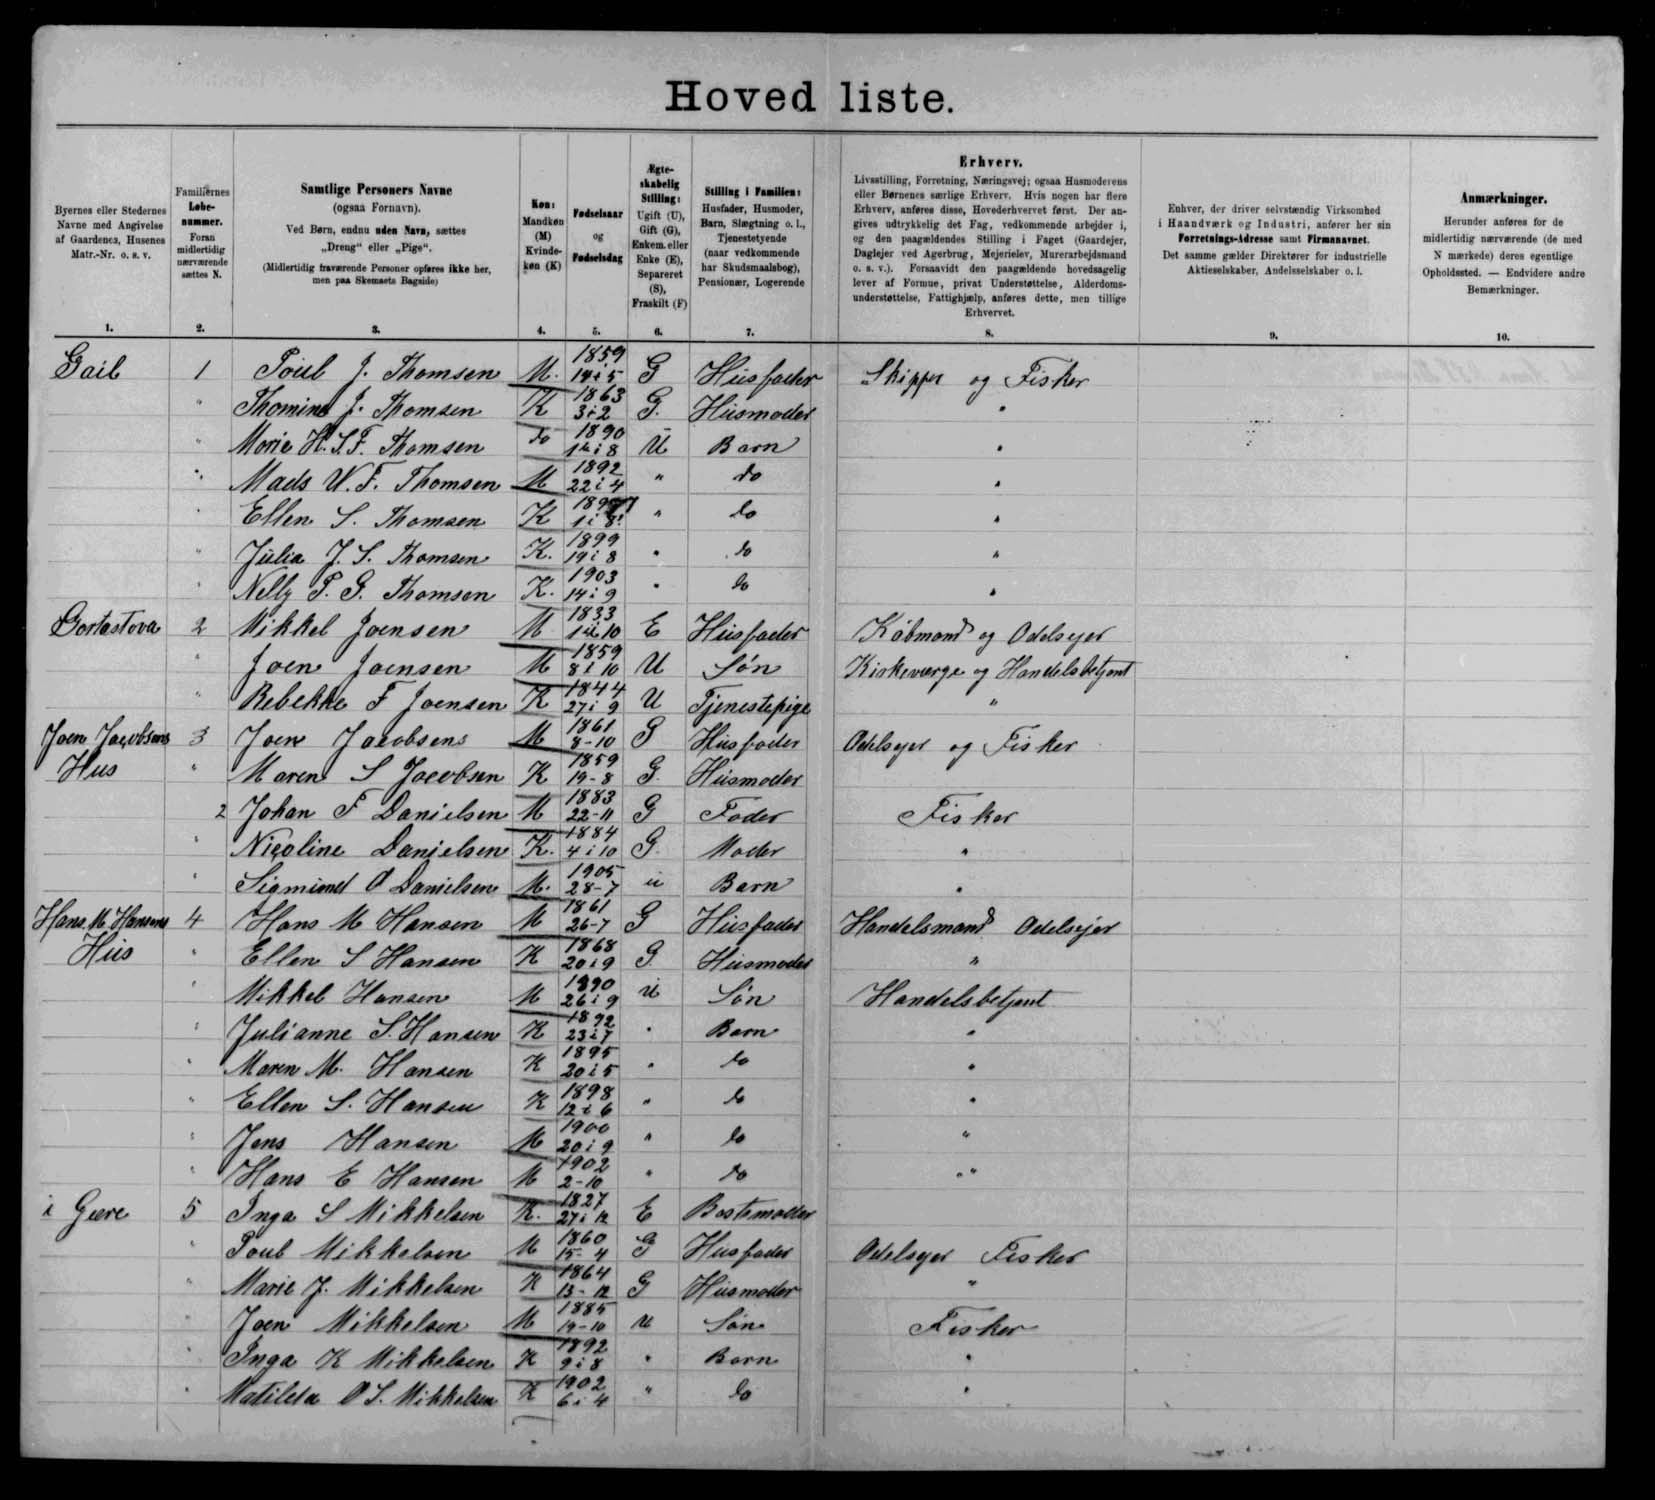 Hoved liste.
Byernes eller Stedernes Navne med Angivelse af Gaardenes, Husenes Matr.-Nr. o. s. v.
Familiernes Løbenummer. Foran midlertidig nærværende sættes N.
Samtlige Personers Navne
(ogsaa Fornavn).
Ved Børn, endnu uden Navn, sættes
„Dreng“ eller „Pige“.
(Midlertidig fraværende Personer opføres ikke her,
men paa Skemaets Bagside)
Køn: Mandkøn (M) Kvindekøn (K)
Fødselsaar og Fødselsdag
Ægteskabelig Stilling: Ugift (U), Gift (G), Enkem. eller Enke (E), Separeret (S), Fraskilt (F)
Stilling i Familien:
Husfader, Husmoder,
Barn, Slægtning o. l.,
Tjenestetyende
(naar vedkommende
har Skudsmaalsbog),
Pensionær, Logerende
Erhverv.
Livsstilling, Forretning, Næringsvej; ogsaa Husmoderens
eller Børnenes særlige Erhverv. Hvis nogen har flere
Erhverv, anføres disse, Hovederhvervet først. Der an-
gives udtrykkelig det Fag, vedkommende arbejder i,
og den paagældendes Stilling i Faget (Gaardejer,
Daglejer ved Agerbrug, Mejerielev, Murerarbejdsmand
o. s. v.). Forsaavidt den paagældende hovedsagelig
lever af Formue, privat Understøttelse, Alderdoms-
understøttelse, Fattighjælp, anføres dette, men tillige
Erhvervet.
Enhver, der driver selvstændig Virksomhed
i Haandværk og Industri, anfører her sin
Forretnings-Adresse samt Firmanavnet.
Det samme gælder Direktører for industrielle
Aktieselskaber, Andelsselskaber o. l.
Anmærkninger.
Herunder anføres for de
midlertidig nærværende (de med
N mærkede) deres egentlige
Opholdssted. — Endvidere andre
Bemærkninger.
1. 2. 3. 4. 5. 6. 7. 8. 9. 10.
Gail 1 Poul J. Thomsen M. 1859 14 i 5 G Husfader Skipper og Fisker
" Thomine J. Thomsen K 1863 3 i 2 G. Husmoder "
" Marie H. S. F. Thomsen do 1890 i 8 U Barn "
" Mads W. F. Thomsen M 1892 22 i 4 " do "
" Ellen S. Thomsen K 1 i 8 " do "
" Julia J. S. Thomsen K. 1899 19 i 8 " do "
" Nelly P. G. Thomsen K. 1903 14 i 9 " do "
Gortastova 2 Mikkel Joensen M 1833 10 E Husfader Købmand og Odelsejer
" Joen Joensen M 1859 8 i 10 U Søn Kirkeværge og Handelsbetjent
" Rebekke F Joensen K 1844 27 i 9 U Tjenestepige "
Joen Jacobsens Hus 3 Joen Jacobsens M 1861 8-10 G Husfader Odelsejer og Fisker
" Maren S Jacobsen K 1859 19-8 G. Husmoder
2 Johan F Danielsen M 1883 22-11 G Fader Fisker
" Nicoline Danielsen K. 1884 4 i 10 G. Moder "
" Sigmund O Danielsen M. 1905 28-7 u Barn "
Hans M Hansens Hus 4 Hans M Hansen M 1861 26-7 G Husfader Handelsmand Odelsejer
" Ellen S Hansen K 1868 20 i 9 G. Husmoder "
" Mikkel Hansen M 1890 26 i 9 U Søn Handelsbetjent
" Julianne S. Hansen K 1892 23 i 7 " Barn "
" Maren M. Hansen K 1895 20 i 5 " do "
" Ellen S. Hansen K 1898 12 i 6 " do "
" Jens Hansen M 1900 20 i 9 " do "
" Hans E Hansen M 1902 2-10 " do "
i Gere 5 Inga S Mikkelsen K. 1827 27 i 12 E Bestemoder
" Poul Mikkelsen M 1860 15-4 G Husfader Odelsejer Fisker
" Marie J. Mikkelsen K 1864 13-12 G Husmoder "
" Joen Mikkelsen M 1885 19-10 U Søn Fisker
" Inga K Mikkelsen K 1892 9 i 8 " Barn "
" Matilda O S. Mikkelsen K 1902 6 i 4 " do "